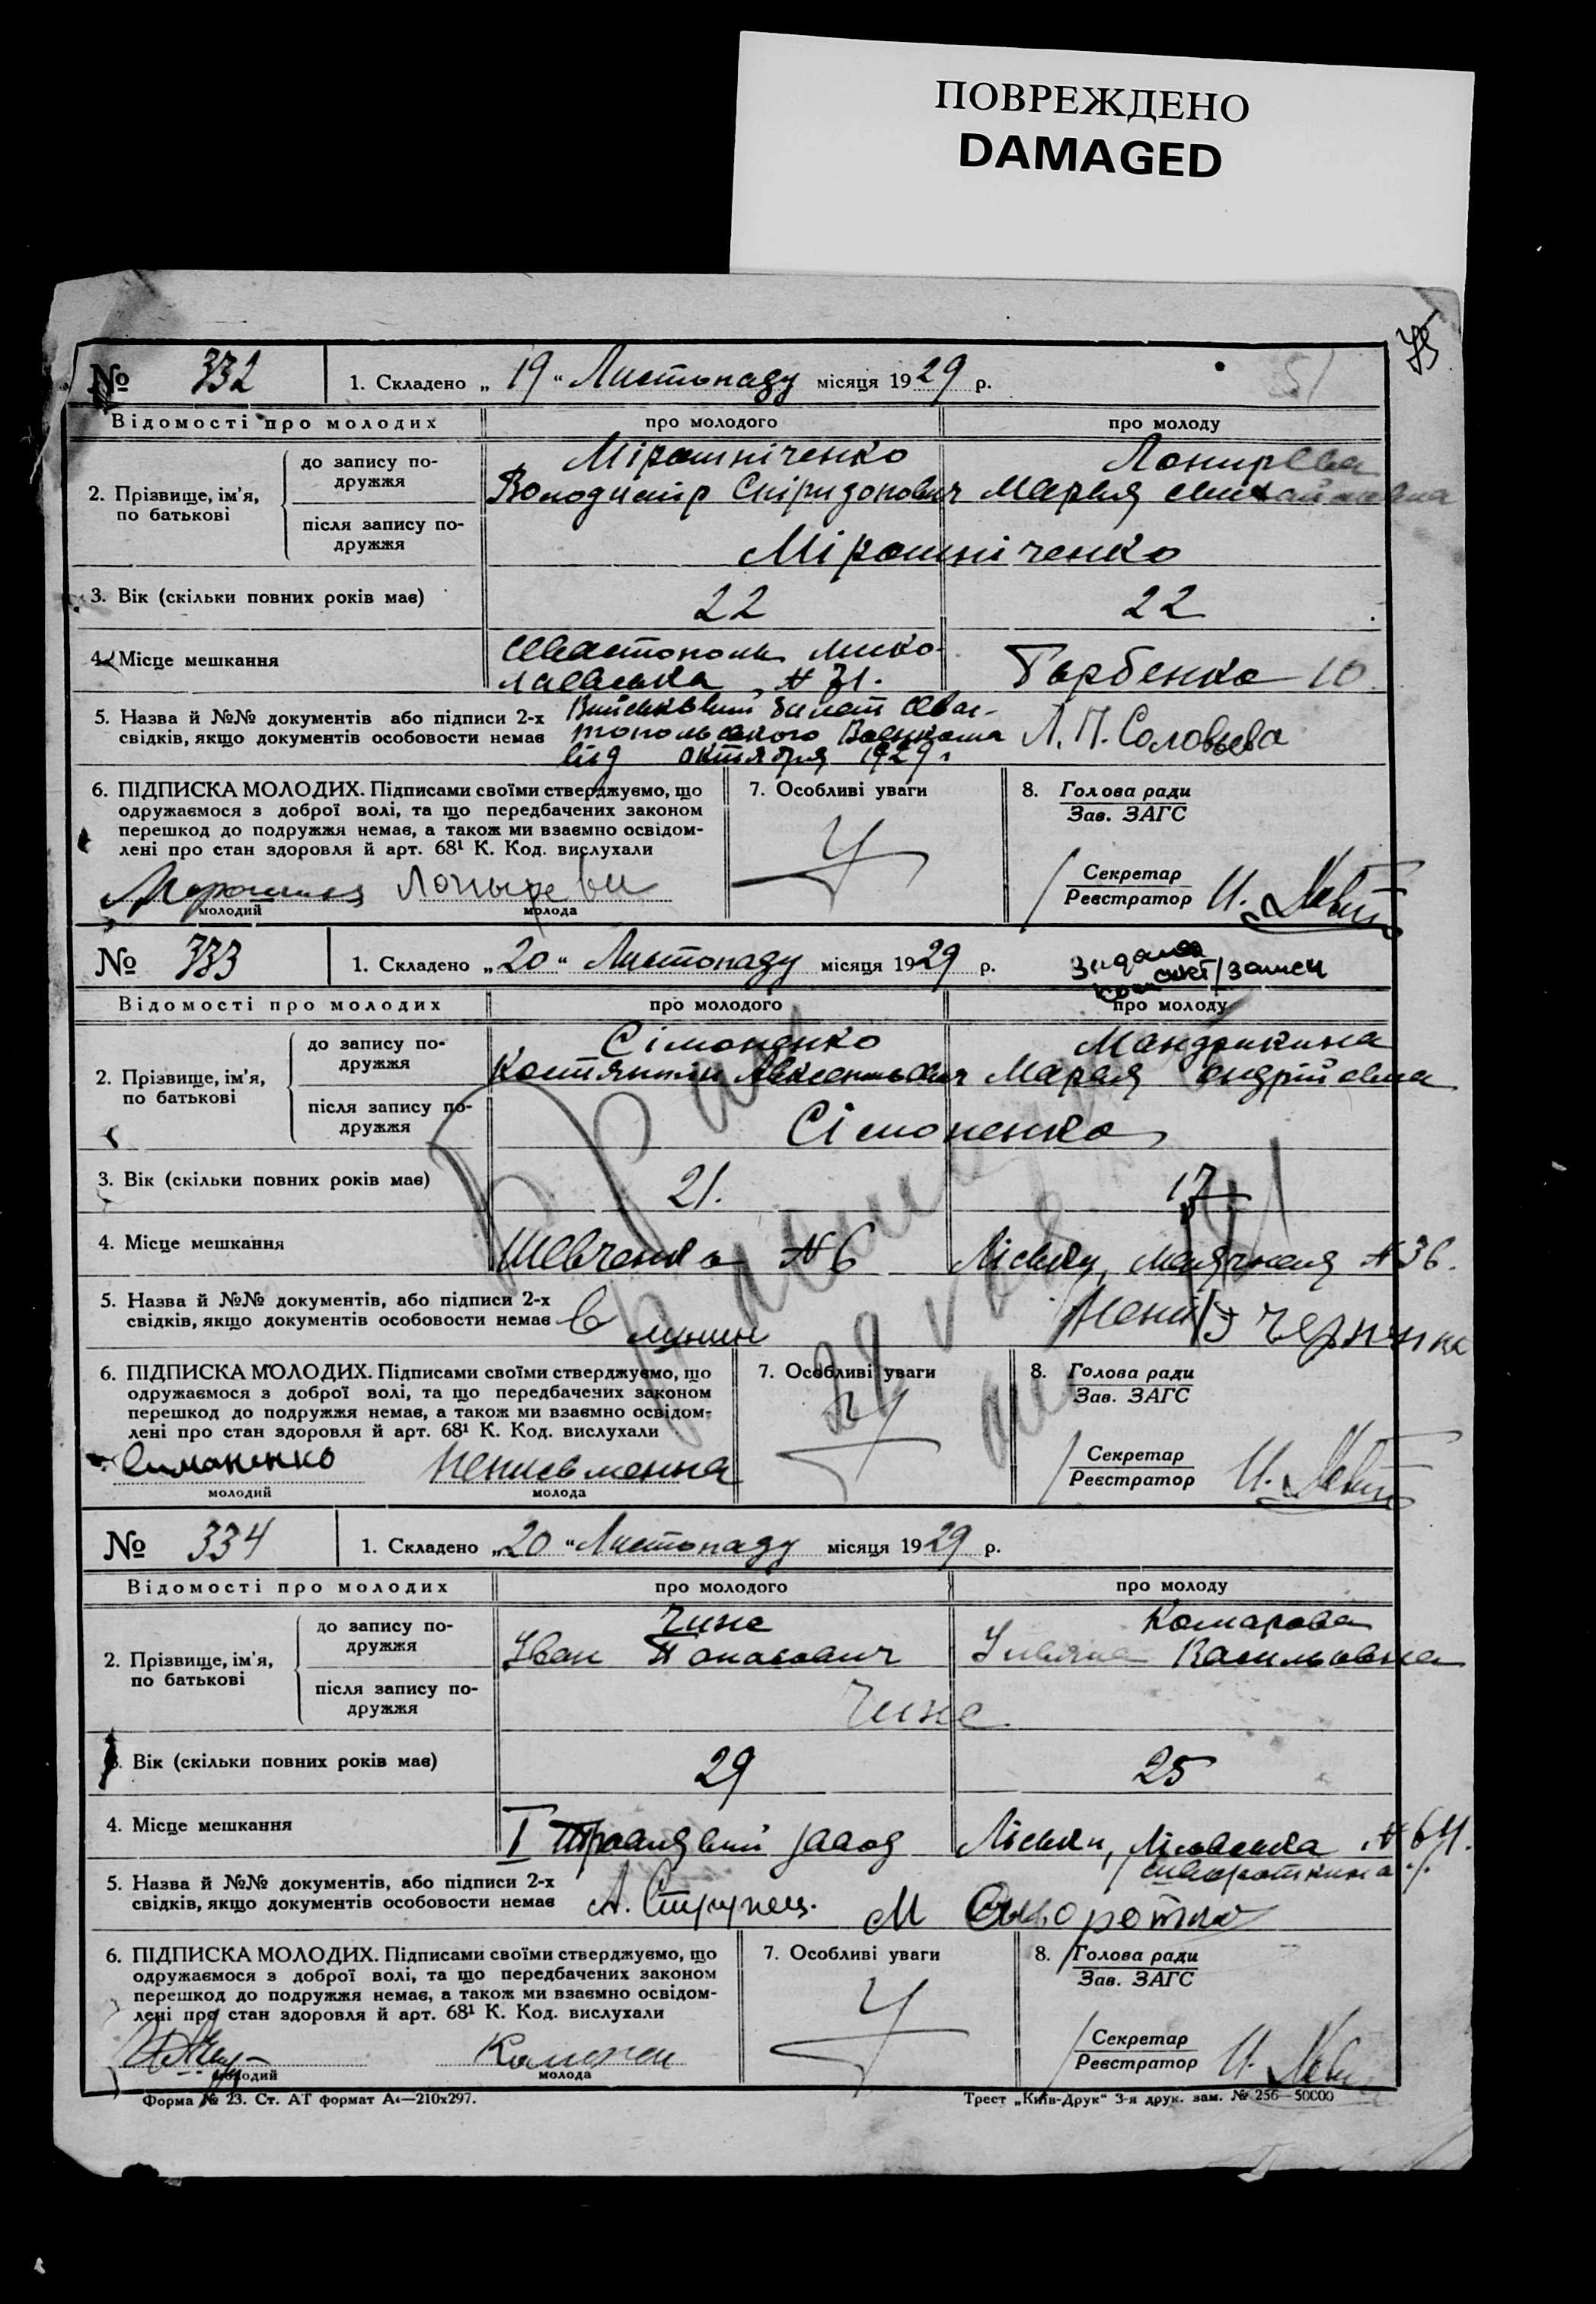 ПОВРЕЖДЕНО
DAMAGED
№ 332 1. Складено „ 19 “ Листопаду місяця 1929 р.
Відомості про молодих про молодого про молоду
2. Прізвище, ім’я, по батькові
до запису подружжя
Мірошніченко
Володимір Спірідонович Марья
після запису подружжя
Мірошніченко
3. Вік (скільки повних років має) 22 22
4. Місце мешкання
Севастополь Мико-
лаевська, № 31. Горбенко 10
5. Назва й №№ документів або підписи 2-х
свідків, якщо документів особовости немає
Військовий билет Сева-
стопольського Военкома Л. П. Соловьева
від октября 1929 г
6. ПІДПИСКА МОЛОДИХ. Підписами своїми стверджуємо, що
одружаємося з доброї волі, та що передбачених законом
перешкод до подружжя немає, а також ми взаємно освідом-
лені про стан здоровля й арт. 68¹ К. Код. вислухали
молодий молода
7. Особливі уваги
8. Голова ради
Зав. ЗАГС
Секретар
Реєстратор
№ 333 1. Складено „20“ Листопаду місяця 1929 р.
Відомості про молодих про молодого про молоду
2. Прізвище, ім’я,
по батькові
до запису по-
дружжя
Сімоненко Мандрикина
Костянтин Авксентьевич Марья Андрійовна
після запису по-
дружжя
Сімоненко
3. Вік (скільки повних років має) 21. 17
4. Місце мешкання Шевченка № 6 Ліски, Маячная № 36.
5. Назва й №№ документів, або підписи 2-х
свідків, якщо документів особовости немає
6. ПІДПИСКА МОЛОДИХ. Підписами своїми стверджуємо, що
одружаємося з доброї волі, та що передбачених законом
перешкод до подружжя немає, а також ми взаємно освідом-
лені про стан здоровля й арт. 68¹ К. Код. вислухали
Симоненко неписьменна
молодий молода
7. Особливі уваги
8. Голова ради
Зав. ЗАГС
Секретар
Реєстратор
№ 334 1. Складено „20“ Листопаду місяця 1929 р.
Відомості про молодих про молодого про молоду
2. Прізвище, ім’я,
по батькові
до запису по-
дружжя
Чиж Комарова
Іван Панасович Васильовна
після запису по-
дружжя
3. Вік (скільки повних років має) 29 25
4. Місце мешкання I завод Ліски, № 64.
5. Назва й №№ документів, або підписи 2-х
свідків, якщо документів особовости немає
А. Струпец. М
6. ПІДПИСКА МОЛОДИХ. Підписами своїми стверджуємо, що
одружаємося з доброї волі, та що передбачених законом
перешкод до подружжя немає, а також ми взаємно освідом-
лені про стан здоровля й арт. 68¹ К. Код. вислухали
молодий молода
7. Особливі уваги
8. Голова ради
Зав. ЗАГС
Секретар
Реєстратор
Форма № 23. Ст. АТ формат А4—210x297. Трест „Київ-Друк“ 3-я друк. зам. № 256—50000